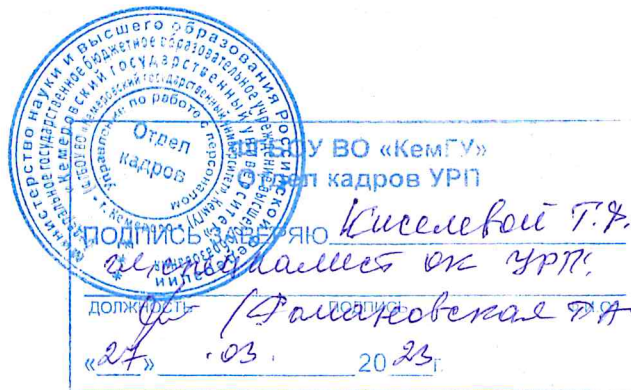 Министерство науки и высшего образования Российской Федерации
федеральное государственное бюджетное образовательное учреждение высшего образования
«Кемеровский государственный университет»
Управление по работе с персоналом
Отдел
кадров
ФГБОУ ВО «КемГУ»
Отдел кадров УРП
ПОДПИСЬ ЗАВЕРЯЮ Киселевой Т.Ф.
специалист ОК УРП
должность подпись
«27» .03. 2023г.